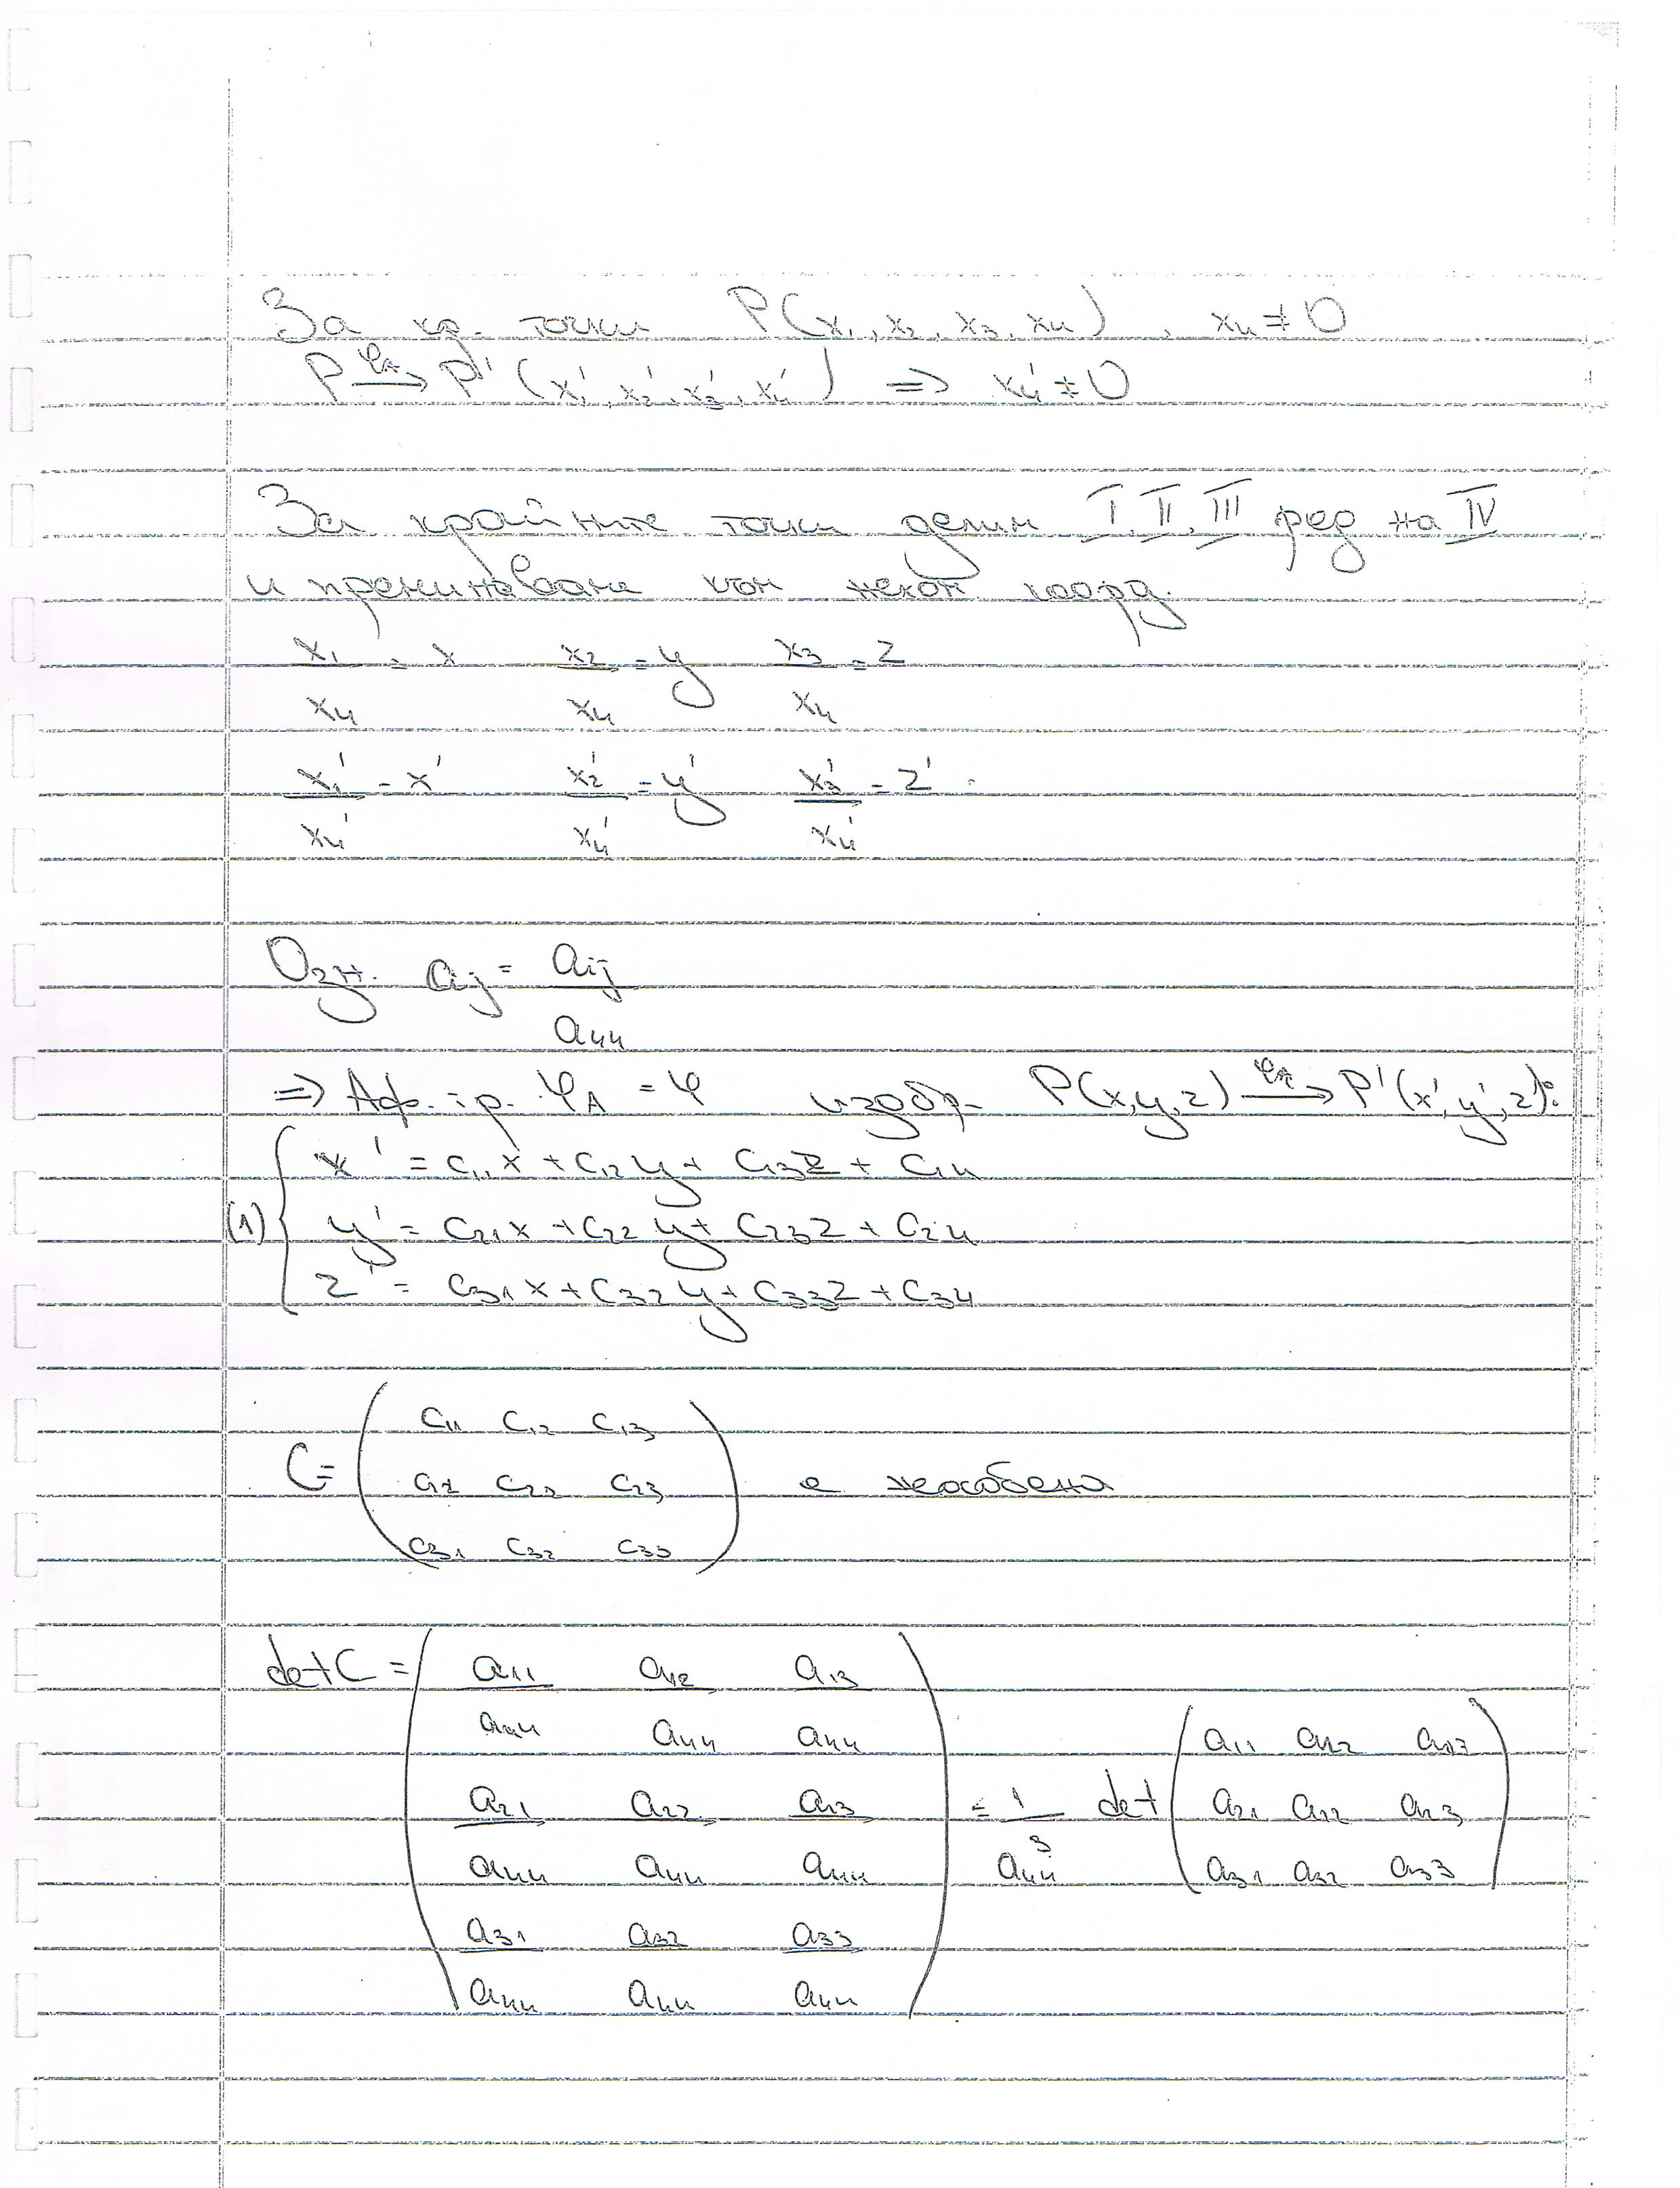 За кр. точки P(x₁, x₂, x₃, x₄), x₄ ≠ 0
P —φ_A→ P'(x₁', x₂', x₃', x₄') ⇒ x₄' ≠ 0
За крайните точки делим I, II, III ред на IV
и преминаваме към нехом коорд.
x₁/x₄ = x x₂/x₄ = y x₃/x₄ = z
x₁'/x₄' = x' x₂'/x₄' = y' x₃'/x₄' = z'
Озн. cᵢⱼ = aᵢⱼ/a₄₄
⇒ Аф. тр. φ_A = φ изобр. P(x,y,z) —φ_A→ P'(x',y',z'):
x' = c₁₁x + c₁₂y + c₁₃z + c₁₄
(1) y' = c₂₁x + c₂₂y + c₂₃z + c₂₄
z' = c₃₁x + c₃₂y + c₃₃z + c₃₄
c₁₁ c₁₂ c₁₃
C = ( c₂₂ c₂₃ ) е неособена
c₃₁ c₃₂ c₃₃
det C = ( a₁₁/a₄₄ a₁₂/a₄₄ a₁₃/a₄₄
a₂₁/a₄₄ a₂₂/a₄₄ a₂₃/a₄₄
a₃₁/a₄₄ a₃₂/a₄₄ a₃₃/a₄₄ ) = 1/a₄₄³ det ( a₁₁ a₁₂ a₁₃
a₂₁ a₂₂ a₂₃
a₃₁ a₃₂ a₃₃ )